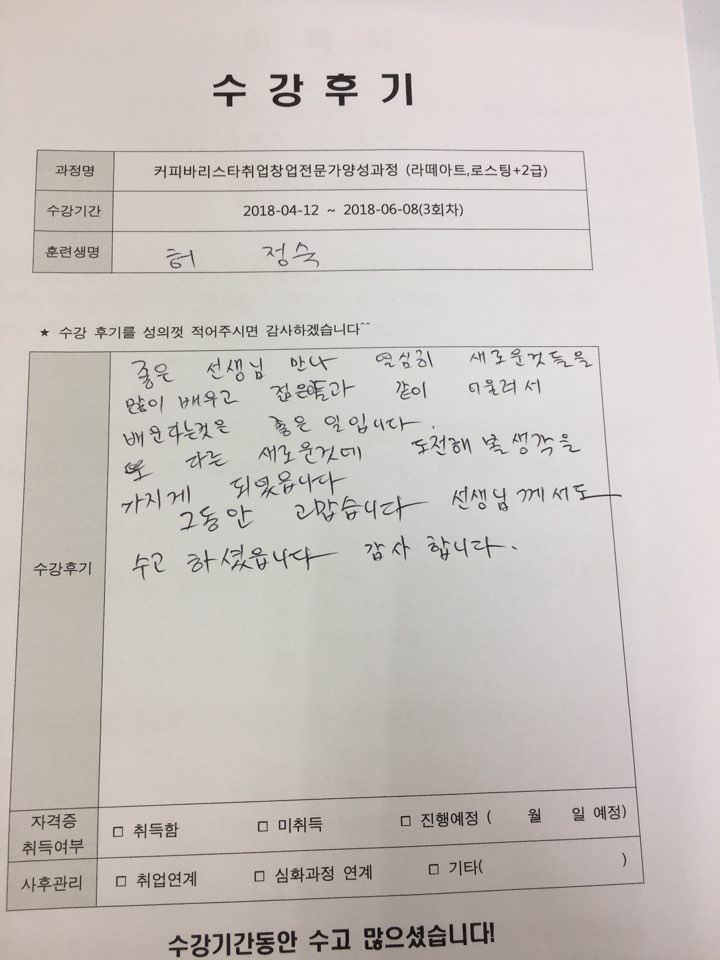 수 강 후 기
과정명 커피바리스타취업창업전문가양성과정 (라떼아트,로스팅+2급)
수강기간 2018-04-12 ~ 2018-06-08(3회차)
훈련생명 허 정숙
★ 수강 후기를 성의껏 적어주시면 감사하겠습니다^^
좋은 선생님 만나 열심히 새로운것들을
많이 배우고 젊은들과 같이 어울려서
배운다는것은 좋은 일입니다.
또 다른 새로운것에 도전해 볼생각을
가지게 되었읍니다
그동안 고맙습니다 선생님께서도
수고 하셨읍니다 감사 합니다.
수강후기
자격증
취득여부 □ 취득함 □ 미취득 □ 진행예정 ( 월 일 예정)
사후관리 □ 취업연계 □ 심화과정 연계 □ 기타( )
수강기간동안 수고 많으셨습니다!